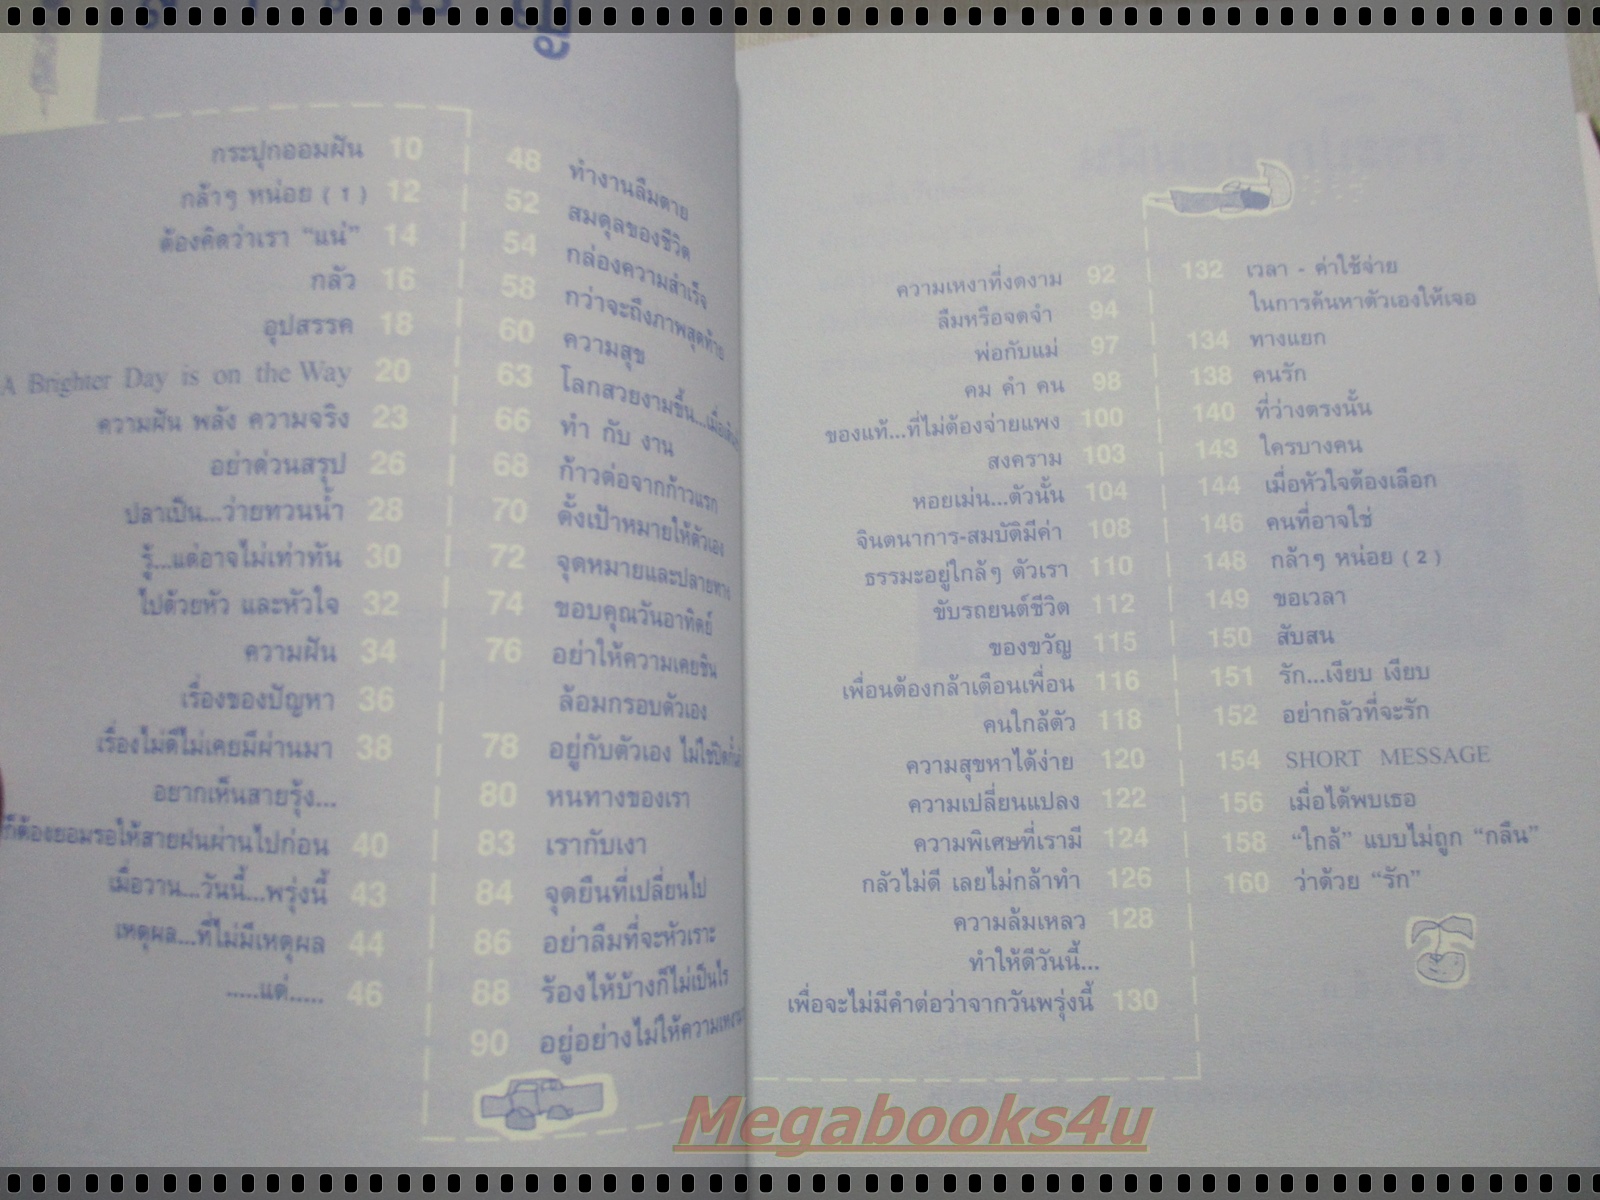 กระปุกออมฝัน 10
กล้าๆ หน่อย ( 1 ) 12
ต้องคิดว่าเรา “แน่” 14
กลัว 16
อุปสรรค 18
A Brighter Day is on the Way 20
ความฝัน พลัง ความจริง 23
อย่าด่วนสรุป 26
ปลาเป็น...ว่ายทวนน้ำ 28
รู้...แต่อาจไม่เท่าทัน 30
ไปด้วยหัว และหัวใจ 32
ความฝัน 34
เรื่องของปัญหา 36
เรื่องไม่ดีไม่เคยมีผ่านมา 38
อยากเห็นสายรุ้ง...
ก็ต้องยอมรอให้สายฝนผ่านไปก่อน 40
เมื่อวาน...วันนี้...พรุ่งนี้ 43
เหตุผล...ที่ไม่มีเหตุผล 44
.....แต่..... 46
48 ทำงานลืมตาย
52 สมดุลของชีวิต
54 กล่องความสำเร็จ
58 กว่าจะถึงภาพสุดท้าย
60 ความสุข
63 โลกสวยงามขึ้น...
66 ทำ กับ งาน
68 ก้าวต่อจากก้าวแรก
70 ตั้งเป้าหมายให้ตัวเอง
72 จุดหมายและปลายทาง
74 ขอบคุณวันอาทิตย์
76 อย่าให้ความเคยชิน
ล้อมกรอบตัวเอง
78 อยู่กับตัวเอง
80 หนทางของเรา
83 เรากับเงา
84 จุดยืนที่เปลี่ยนไป
86 อย่าลืมที่จะหัวเราะ
88 ร้องไห้บ้างก็ไม่เป็นไร
90 อยู่อย่างไม่ให้ความเหงา
ความเหงาที่งดงาม 92
ลืมหรือจดจำ 94
พ่อกับแม่ 97
คม คำ คน 98
ของแท้...ที่ไม่ต้องจ่ายแพง 100
สงคราม 103
หอยเม่น...ตัวนั้น 104
จินตนาการ-สมบัติมีค่า 108
ธรรมะอยู่ใกล้ๆ ตัวเรา 110
ขับรถยนต์ชีวิต 112
ของขวัญ 115
เพื่อนต้องกล้าเตือนเพื่อน 116
คนใกล้ตัว 118
ความสุขหาได้ง่าย 120
ความเปลี่ยนแปลง 122
ความพิเศษที่เรามี 124
กลัวไม่ดี เลยไม่กล้าทำ 126
ความล้มเหลว 128
ทำให้ดีวันนี้...
เพื่อจะไม่มีคำต่อว่าจากวันพรุ่งนี้ 130
132 เวลา - ค่าใช้จ่าย
ในการค้นหาตัวเองให้เจอ
134 ทางแยก
138 คนรัก
140 ที่ว่างตรงนั้น
143 ใครบางคน
144 เมื่อหัวใจต้องเลือก
146 คนที่อาจใช่
148 กล้าๆ หน่อย ( 2 )
149 ขอเวลา
150 สับสน
151 รัก...เงียบ เงียบ
152 อย่ากลัวที่จะรัก
154 SHORT MESSAGE
156 เมื่อได้พบเธอ
158 “ใกล้” แบบไม่ถูก “กลืน”
160 ว่าด้วย “รัก”
Megabooks4u